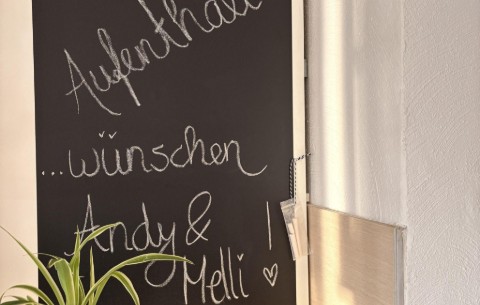 Aufenthalt
...wünschen
Andy &
Melli! ♡